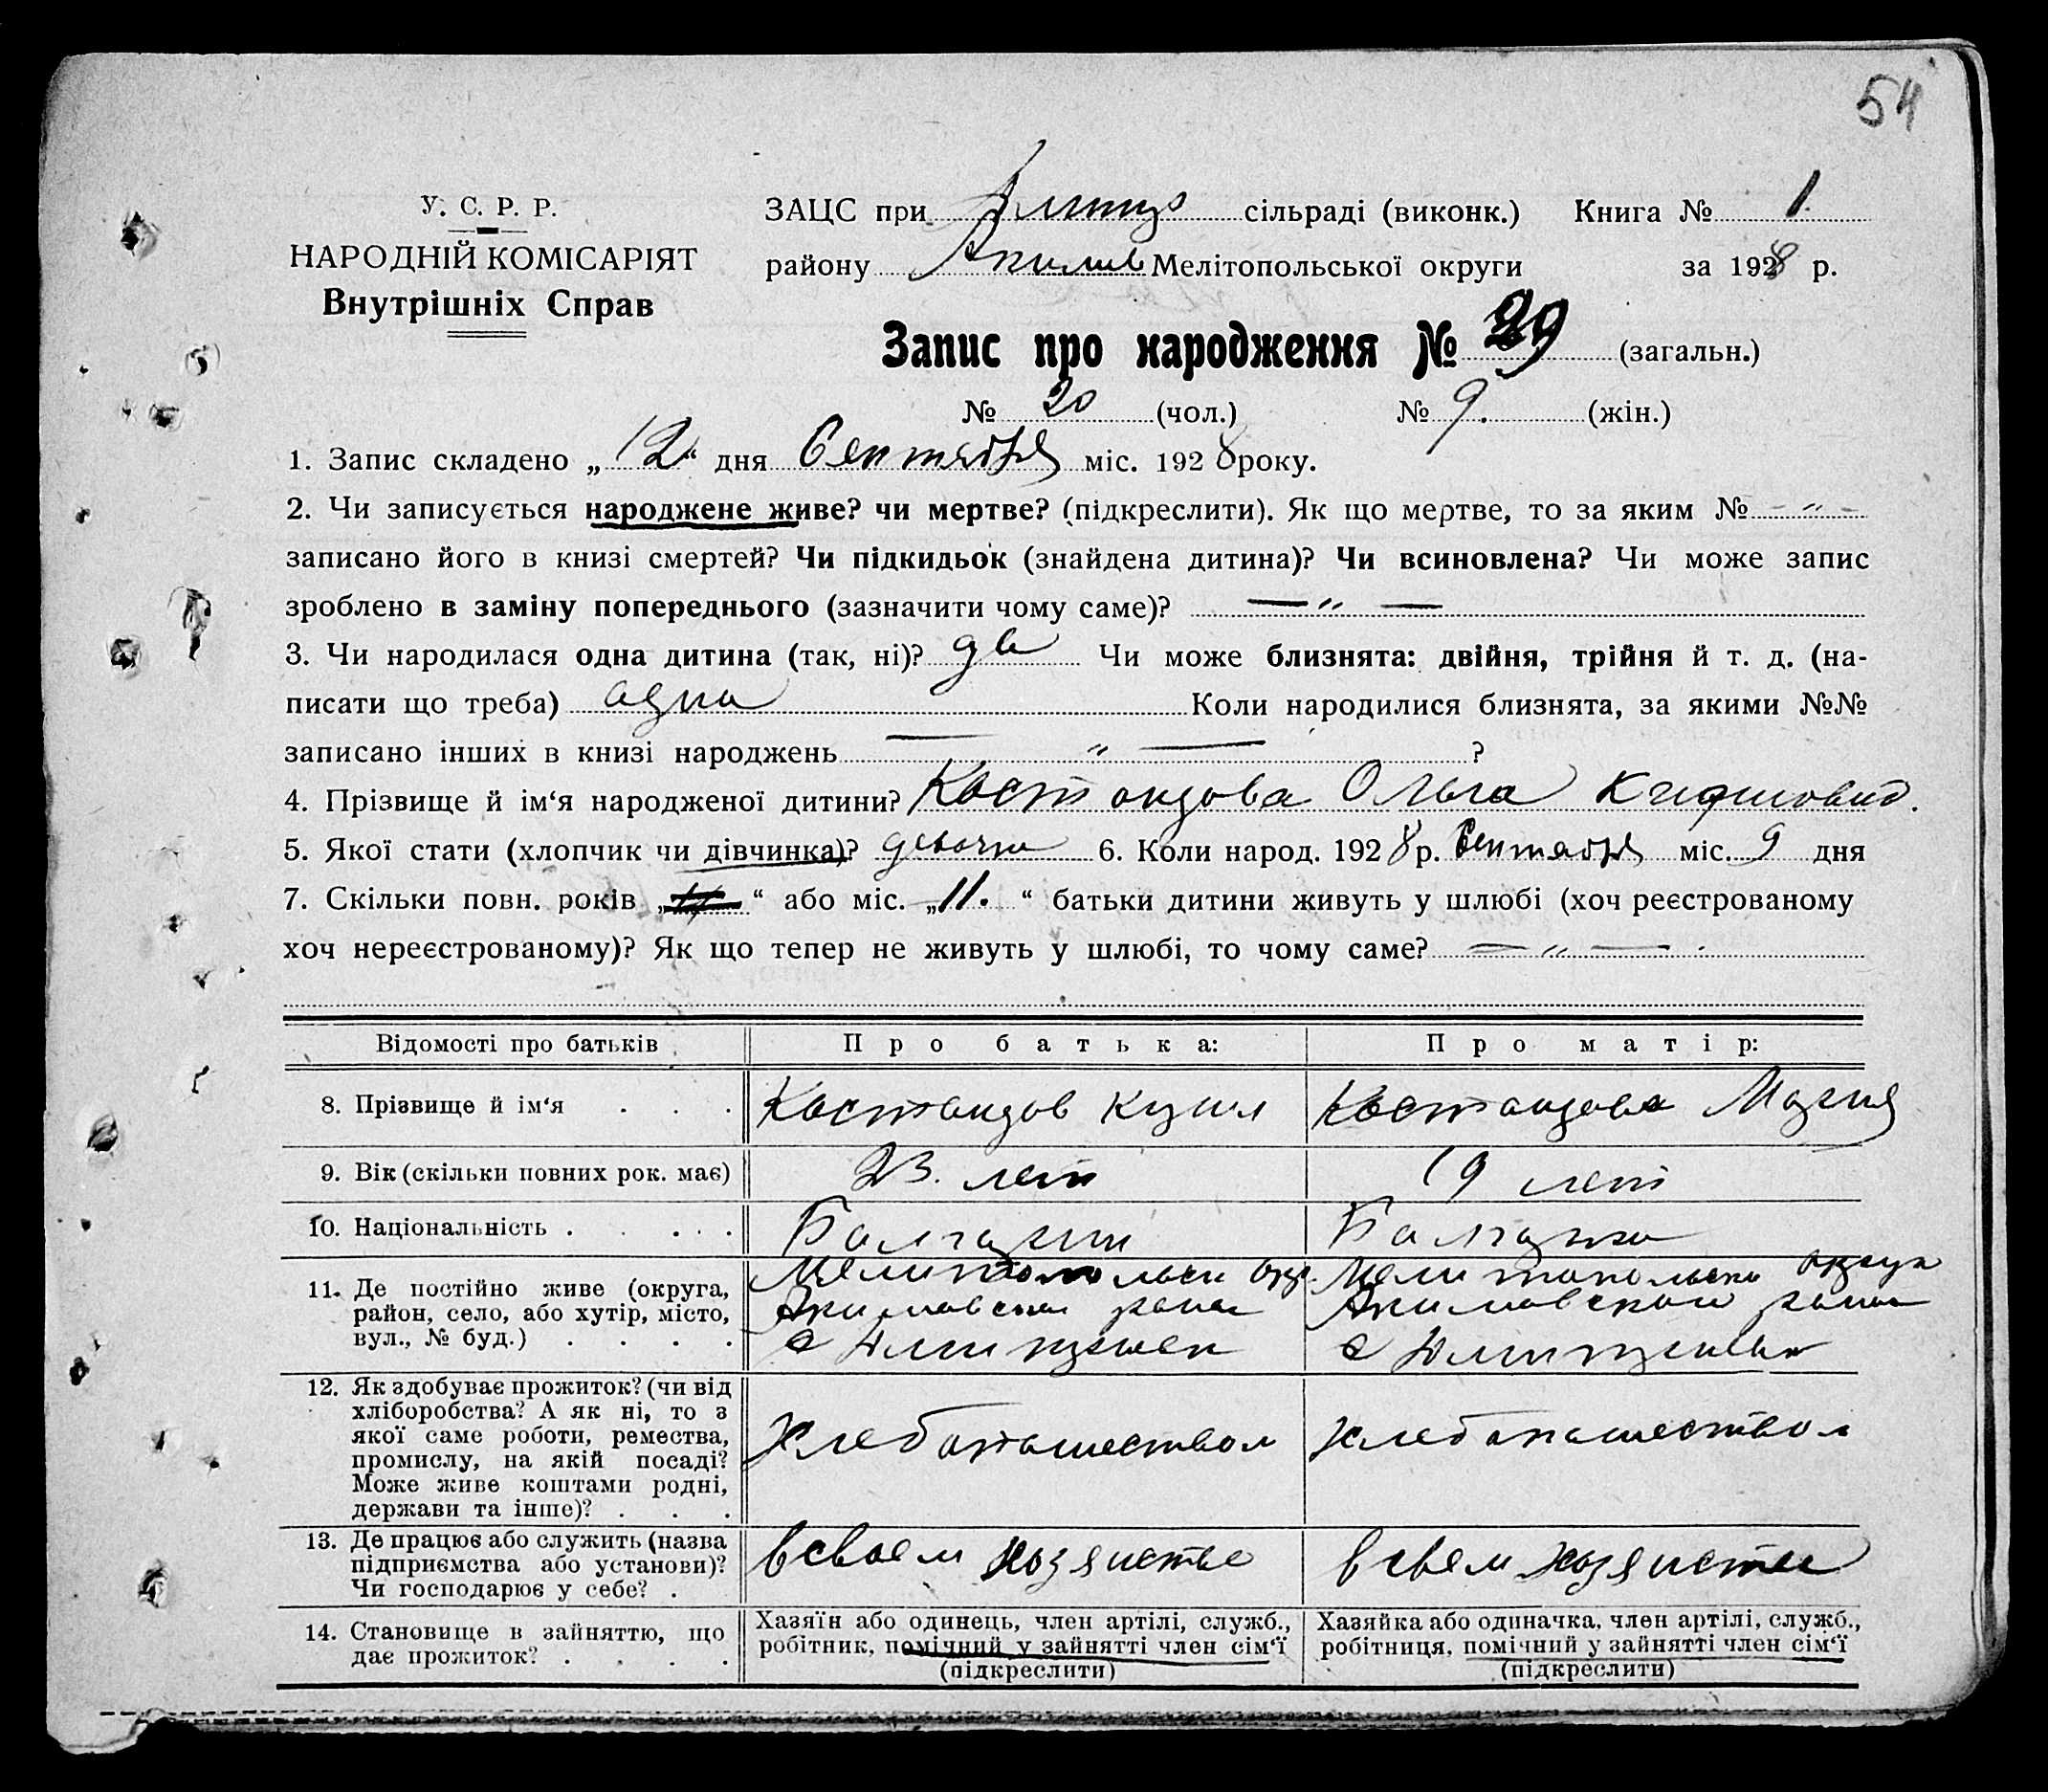 54
У. С. Р. Р.
НАРОДНІЙ КОМІСАРІЯТ
Внутрішніх Справ
ЗАЦС при сільраді (виконк.) Книга № 1.
району Аким Мелітопольської округи за 1928 р.
Запис про народження № 29 (загальн.)
№ 20 (чол.) № 9. (жін.)
1. Запис складено „12“ дня Сентября міс. 1928 року.
2. Чи записується народжене живе? чи мертве? (підкреслити). Як що мертве, то за яким № - „ -
записано його в книзі смертей? Чи підкидьок (знайдена дитина)? Чи всиновлена? Чи може запис
зроблено в заміну попереднього (зазначити чому саме)? — „ —
3. Чи народилася одна дитина (так, ні)? да Чи може близнята: двійня, трійня й т. д. (на-
писати що треба) одна Коли народилися близнята, за якими №№
записано інших в книзі народжень — „ — ?
4. Прізвище й ім‘я народженої дитини? Костандова Ольга
5. Якої стати (хлопчик чи дівчинка)? девочка 6. Коли народ. 1928 р. Сентября міс. 9 дня
7. Скільки повн. років „ “ або міс. „11.“ батьки дитини живуть у шлюбі (хоч реєстрованому
хоч нереєстрованому)? Як що тепер не живуть у шлюбі, то чому саме? — „ — .
Відомості про батьків Про батька: Про матір:
8. Прізвище й ім‘я . . . Костандов Костандова Мария
9. Вік (скільки повних рок. має) 23. лет 19 лет
10. Національність . . . . . Болгарин Болгарка
11. Де постійно живе (округа,
район, село, або хутір, місто,
вул., № буд.) . . . .
Мелитопольск окр.
Акимовскаи раиа
с
Мелитопольски округа
Акимовскаи раиа
с
12. Як здобуває прожиток? (чи від
хліборобства? А як ні, то з
якої саме роботи, ремества,
промислу, на якій посаді?
Може живе коштами родні,
держави та інше)? . . .
Хлебопашеством
Хлебопашеством
13. Де працює або служить (назва
підприємства або установи)?
Чи господарює у себе? .
в своем хозяистве
в своем хозяистве
14. Становище в зайняттю, що
дає прожиток? . . . .
Хазяїн або одинець, член артілі, служб.,
робітник, помічний у зайнятті член сім‘ї
(підкреслити)
Хазяйка або одиначка, член артілі, служб.,
робітниця, помічний у зайнятті член сім‘ї
(підкреслити)